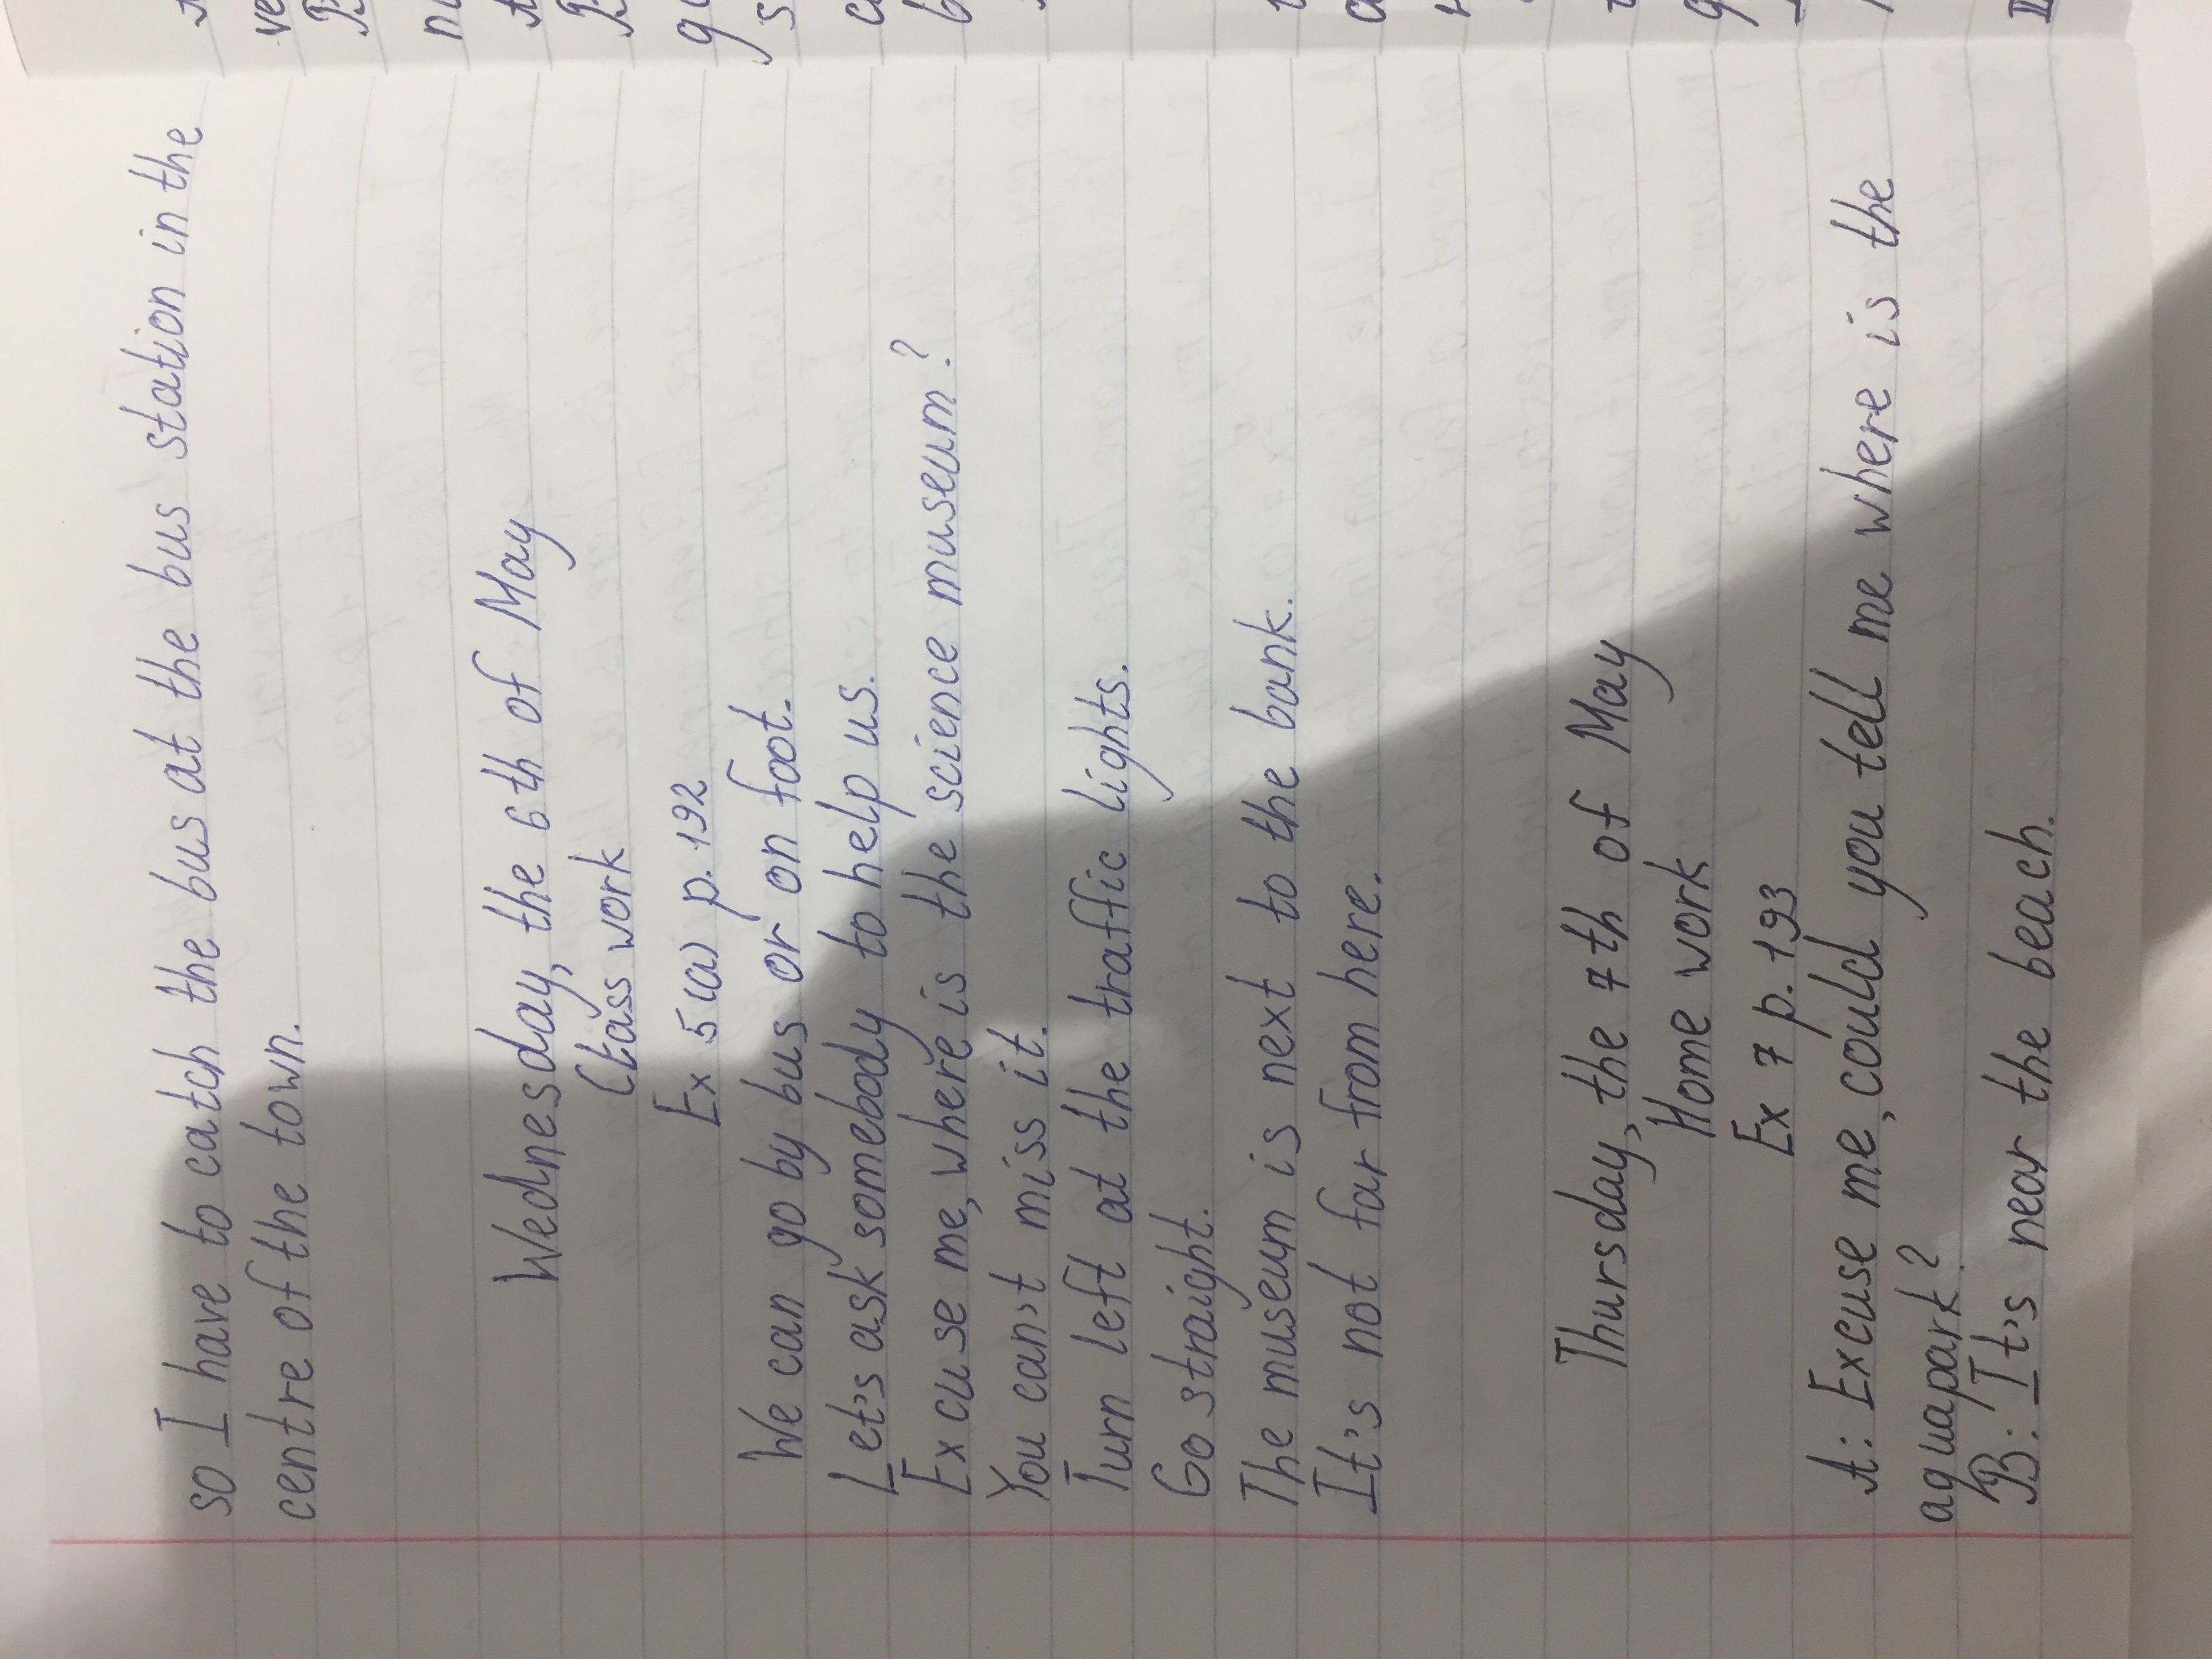 so I have to catch the bus at the bus station in the
centre of the town.
Wednesday, the 6th of May
Class work
Ex 5 (a) p. 192
We can go by bus or on foot.
Let's ask somebody to help us.
Excuse me, where is the science museum?
You can't miss it.
Turn left at the traffic lights.
Go straight.
The museum is next to the bank.
It's not far from here.
Thursday, the 7th of May
Home work
Ex 7 p. 193
A: Excuse me, could you tell me where is the
aquapark?
B: It's near the beach.